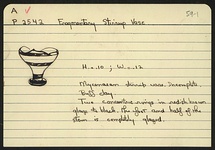 A
59-1
P 2542 Fragmentary Stirrup Vase
H. = .10 ; W. = .12
Mycenaean stirrup vase. Incomplete.
Buff clay.
Two concentric rings in reddish brown
glaze to black. The foot and half of the
stem is completely glazed.